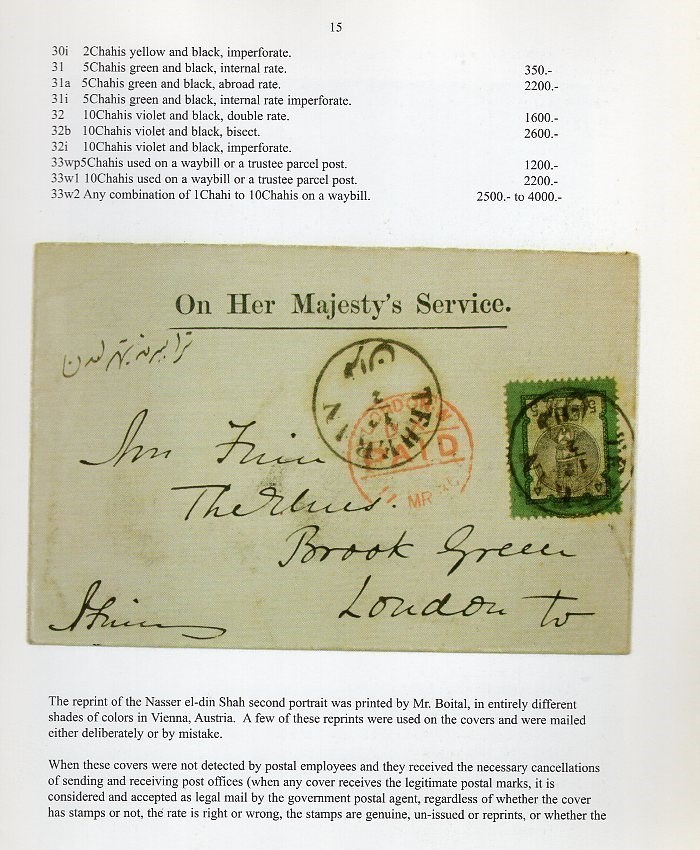 15
30i 2Chahis yellow and black, imperforate.
31 5Chahis green and black, internal rate. 350.-
31a 5Chahis green and black, abroad rate. 2200.-
31i 5Chahis green and black, internal rate imperforate.
32 10Chahis violet and black, double rate. 1600.-
32b 10Chahis violet and black, bisect. 2600.-
32i 10Chahis violet and black, imperforate.
33wp5Chahis used on a waybill or a trustee parcel post. 1200.-
33w1 10Chahis used on a waybill or a trustee parcel post. 2200.-
33w2 Any combination of 1Chahi to 10Chahis on a waybill. 2500.- to 4000.-
On Her Majesty's Service.
TEHERAN
LONDON
PAID
MR
5 5
The
Brook Green
London
The reprint of the Nasser el-din Shah second portrait was printed by Mr. Boital, in entirely different
shades of colors in Vienna, Austria. A few of these reprints were used on the covers and were mailed
either deliberately or by mistake.
When these covers were not detected by postal employees and they received the necessary cancellations
of sending and receiving post offices (when any cover receives the legitimate postal marks, it is
considered and accepted as legal mail by the government postal agent, regardless of whether the cover
has stamps or not, the rate is right or wrong, the stamps are genuine, un-issued or reprints, or whether the